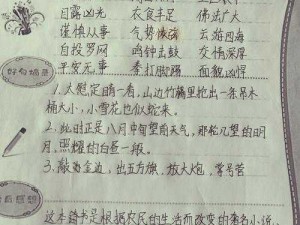 目露凶光 衣食丰足 佛法广大
谨慎从事 气势 云游四海
自投罗网 鸣钟击鼓 交情深厚
平安无事 拳打脚踢 面貌凶愕
好句摘录
1.太慰定睛一看，山边竹藤里抢出一条吊木
桶大小，小雪花也似蛇来。
2.此时正是八月中旬望前天气，那轮几望的明
月，照耀的白昼一般。
3.敲 金边，出五方旗，放大炮，掌号营
感想
这本 书是根据农民的生活而改变的著名小说